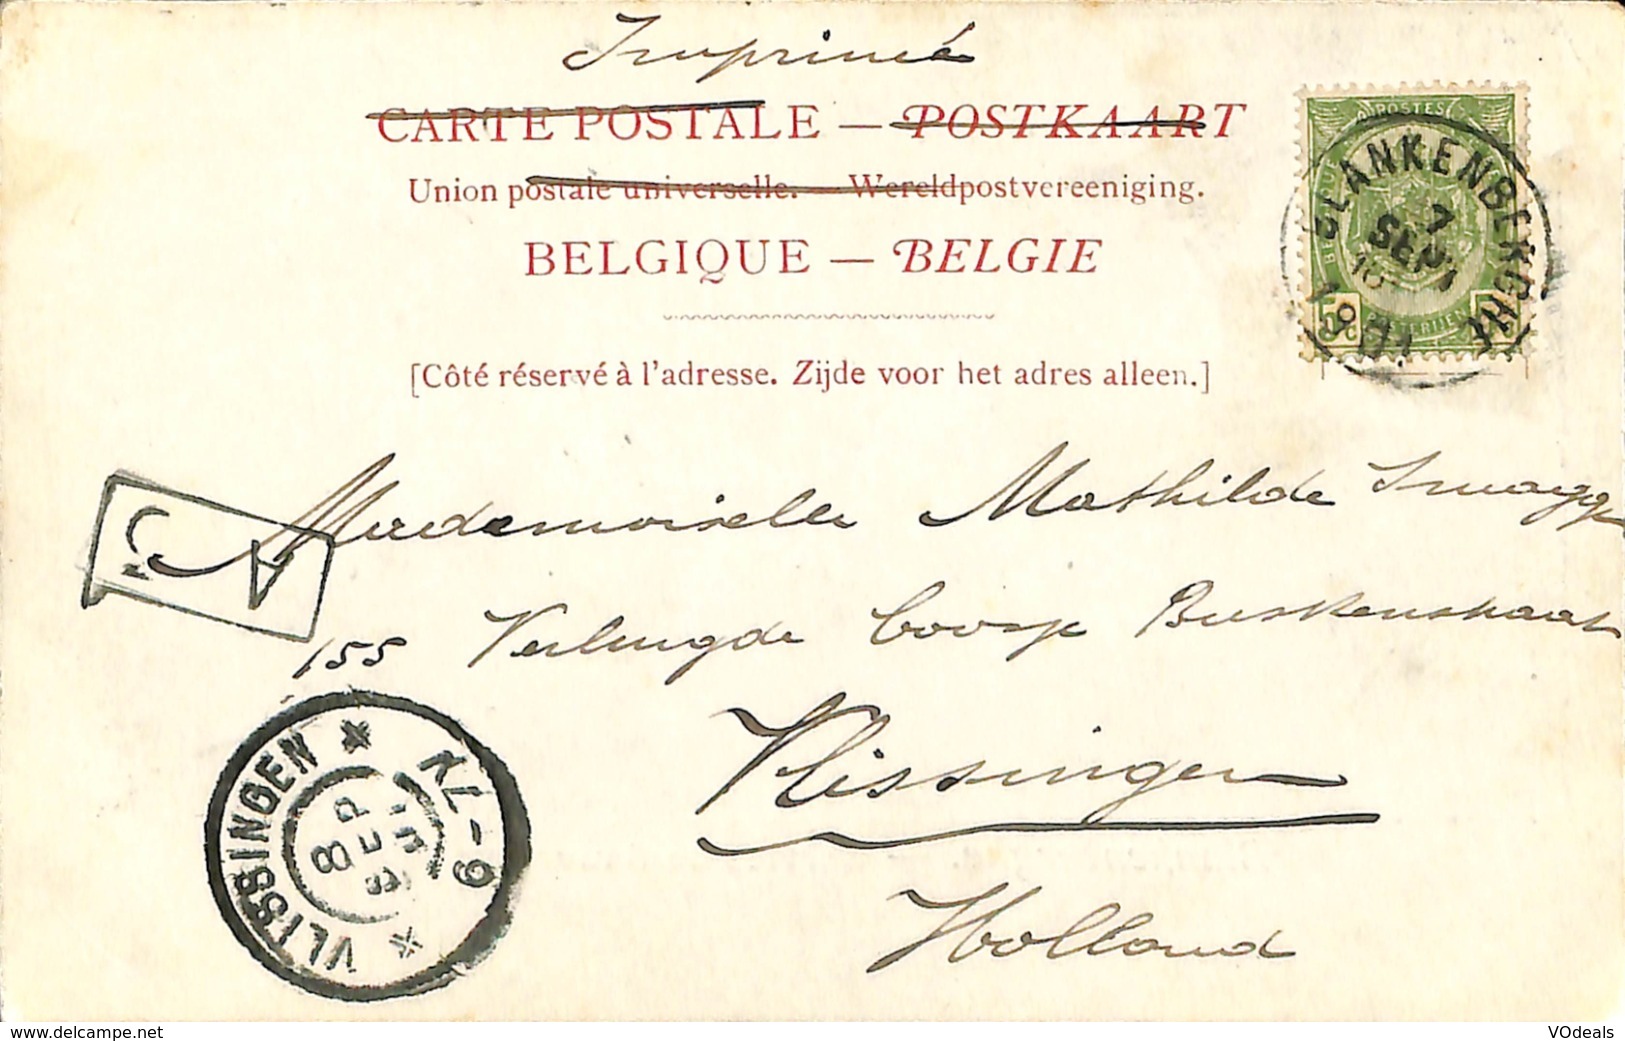 Imprimé
CARTE POSTALE — POSTKAART
Union postale universelle. — Wereldpostvereeniging.
BELGIQUE — BELGIE
[Côté réservé à l'adresse. Zijde voor het adres alleen.]
POSTES
BLANKENBERGHE
7
SEPT
1901
5c
Mademoiselle Mathilde
155 Verlengde Buskenstraat
Vlissingen
Holland
VLISSINGEN * KL-9 *
8 SEP
www.delcampe.net
VOdeals